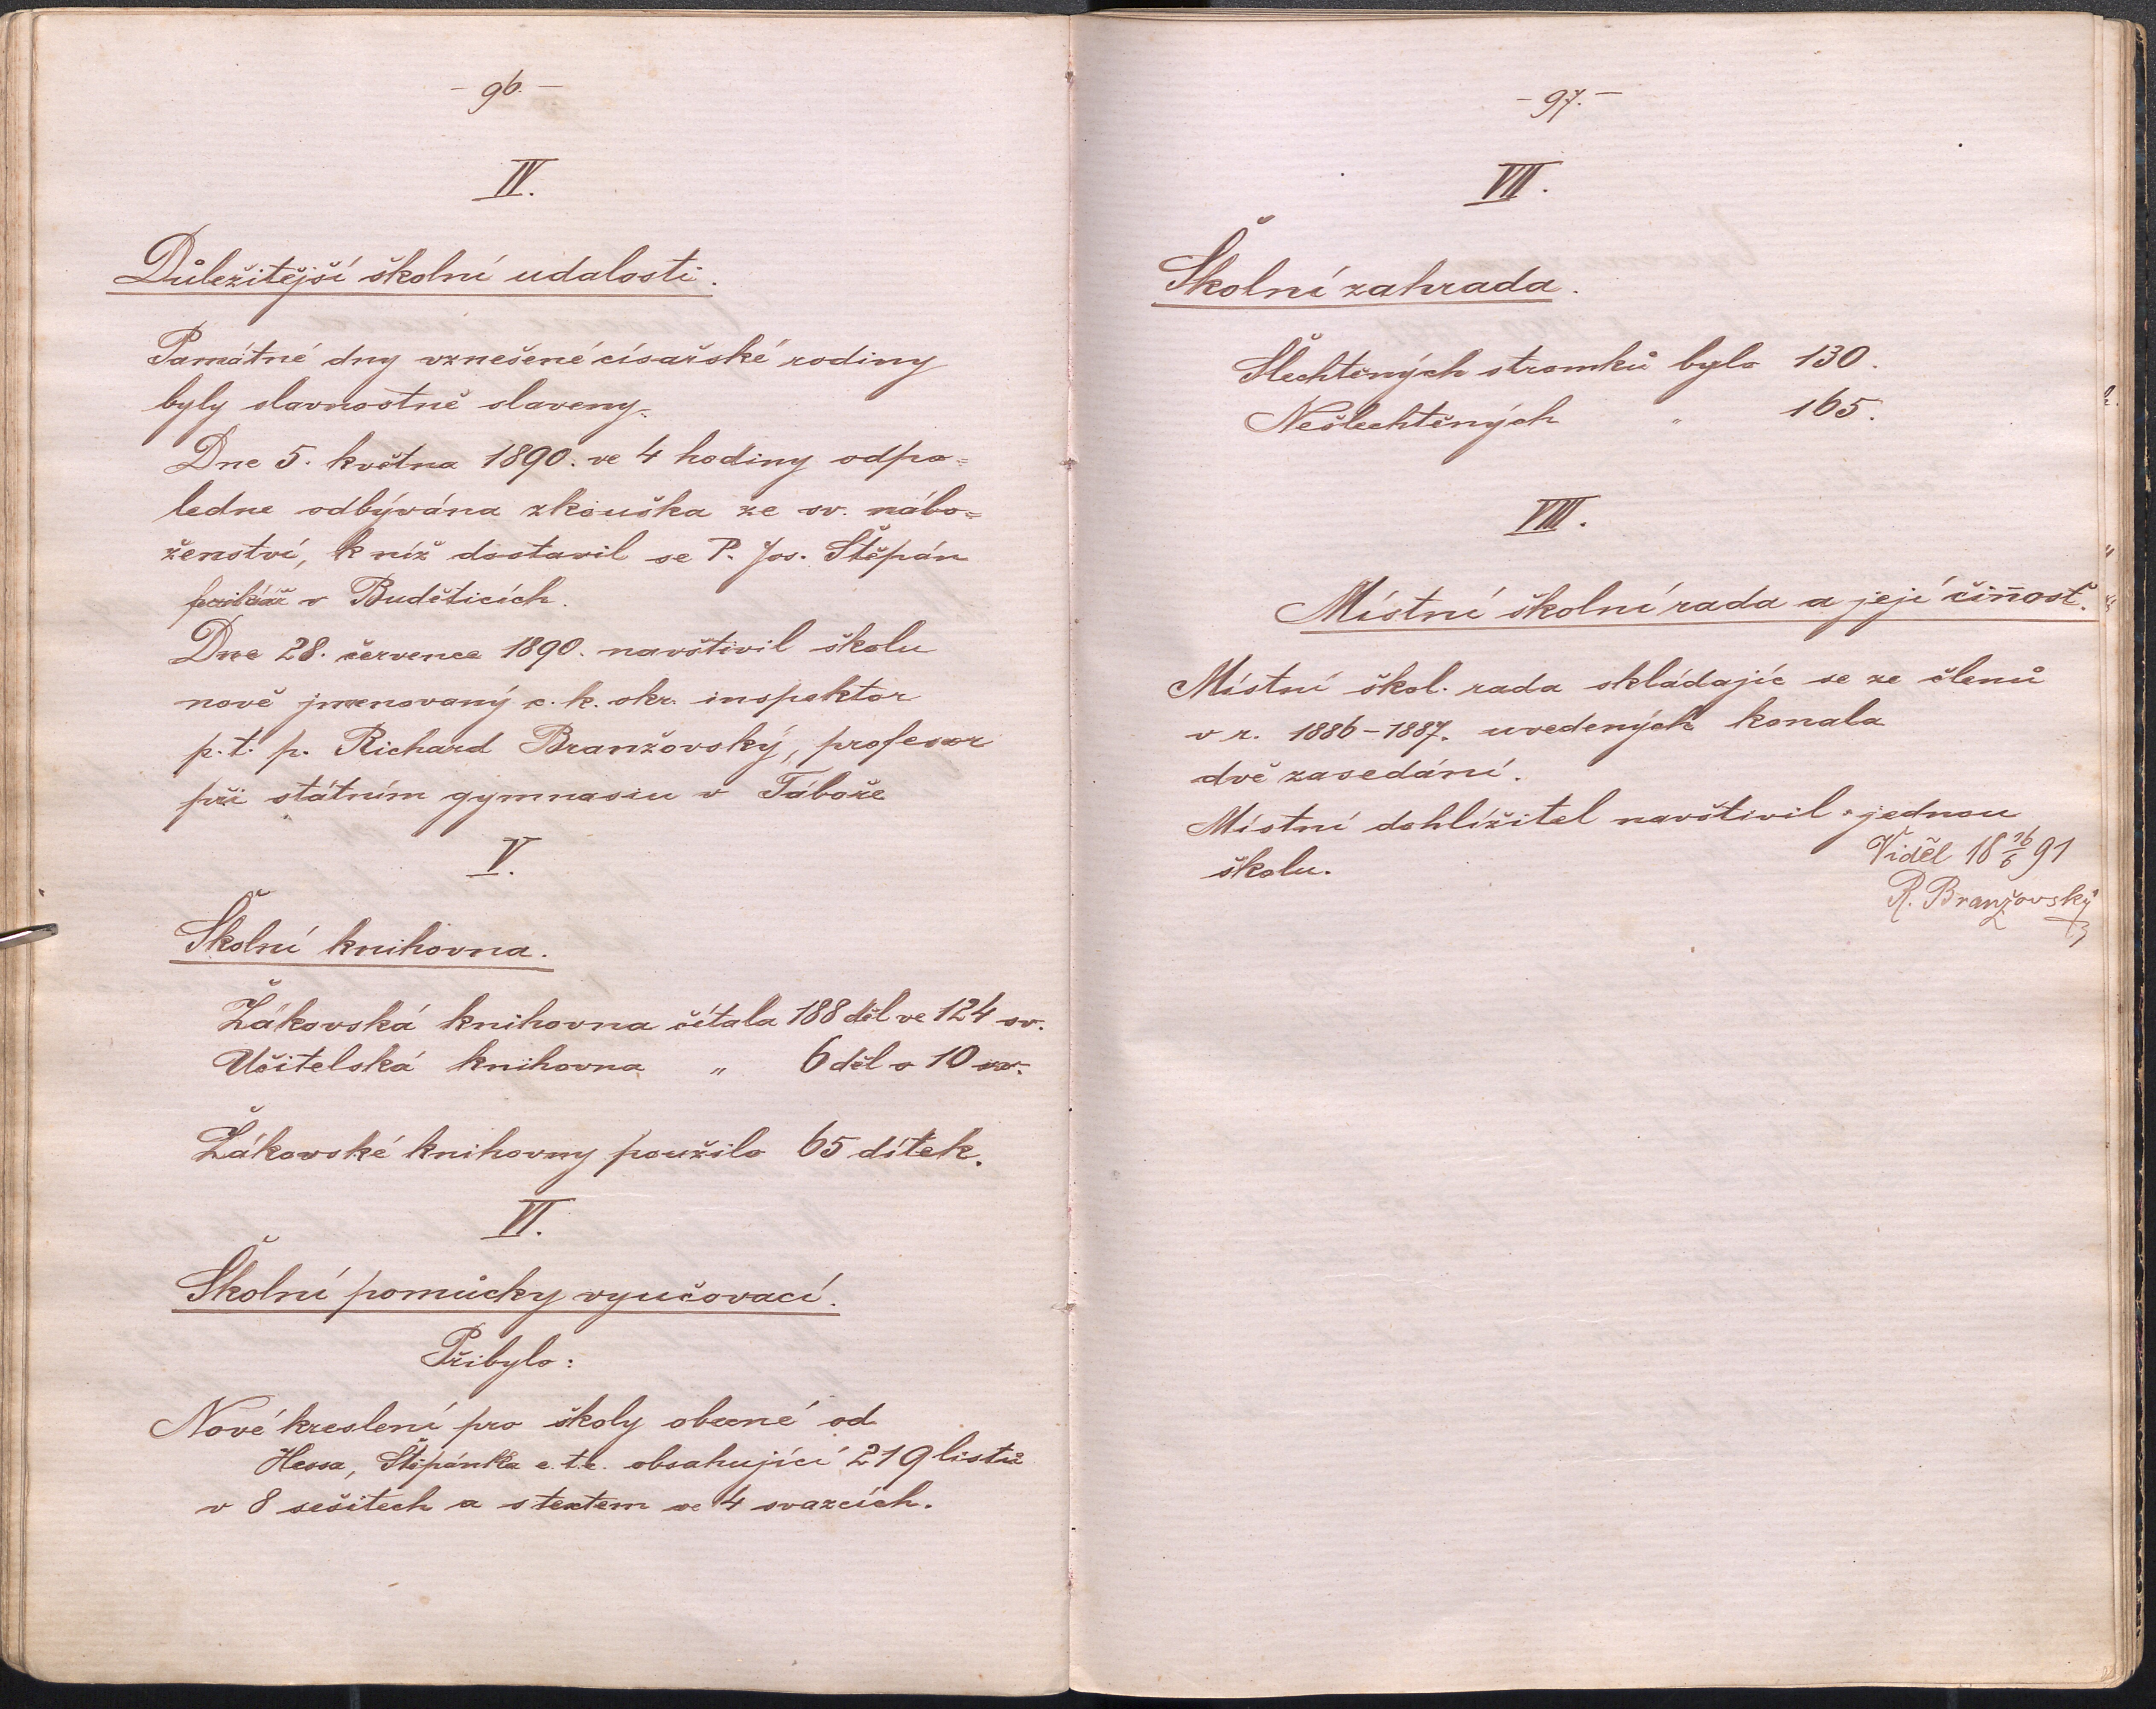 - 96. -
IV.
Důležitější školní udalosti.
Památné dny vznešené císařské rodiny
byly slavnostně slaveny.
Dne 5. května 1890. ve 4 hodiny odpo=
ledne odbývána zkouška ze sv. nábo=
ženství, k níž dostavil se P. Jos. Štěpán
v Buděticích.
Dne 28. července 1890. navštivil školu
nově jmenovaný c. k. okr. inspektor
p. t. p. Richard Branžovský, profesor
při státním gymnasiu v Táboře
V.
Školní knihovna.
Žákovská knihovna čítala 188 děl ve 124 sv.
Učitelská knihovna " 6 děl v 10 sv.
Žákovské knihovny použilo 65 dítek.
VI.
Školní pomůcky vyučovací.
Přibylo:
Nové kreslení pro školy obecné od
Hessa, Štěpánka e. t. c. obsahující 219 listů
v 8 sešitech a s textem ve 4 svazcích.
- 97. -
VII.
Školní zahrada.
Šlechtěných stromků bylo 130.
Nešlechtěných " 165.
VIII.
Místní školní rada a její činnosť.
Místní škol. rada skládajíc se ze členů
v r. 1886-1887. uvedených konala
dvě zasedání.
Místní dohlížitel navštivil jednou
školu.
Viděl 18 16/6 91
R. Branžovský